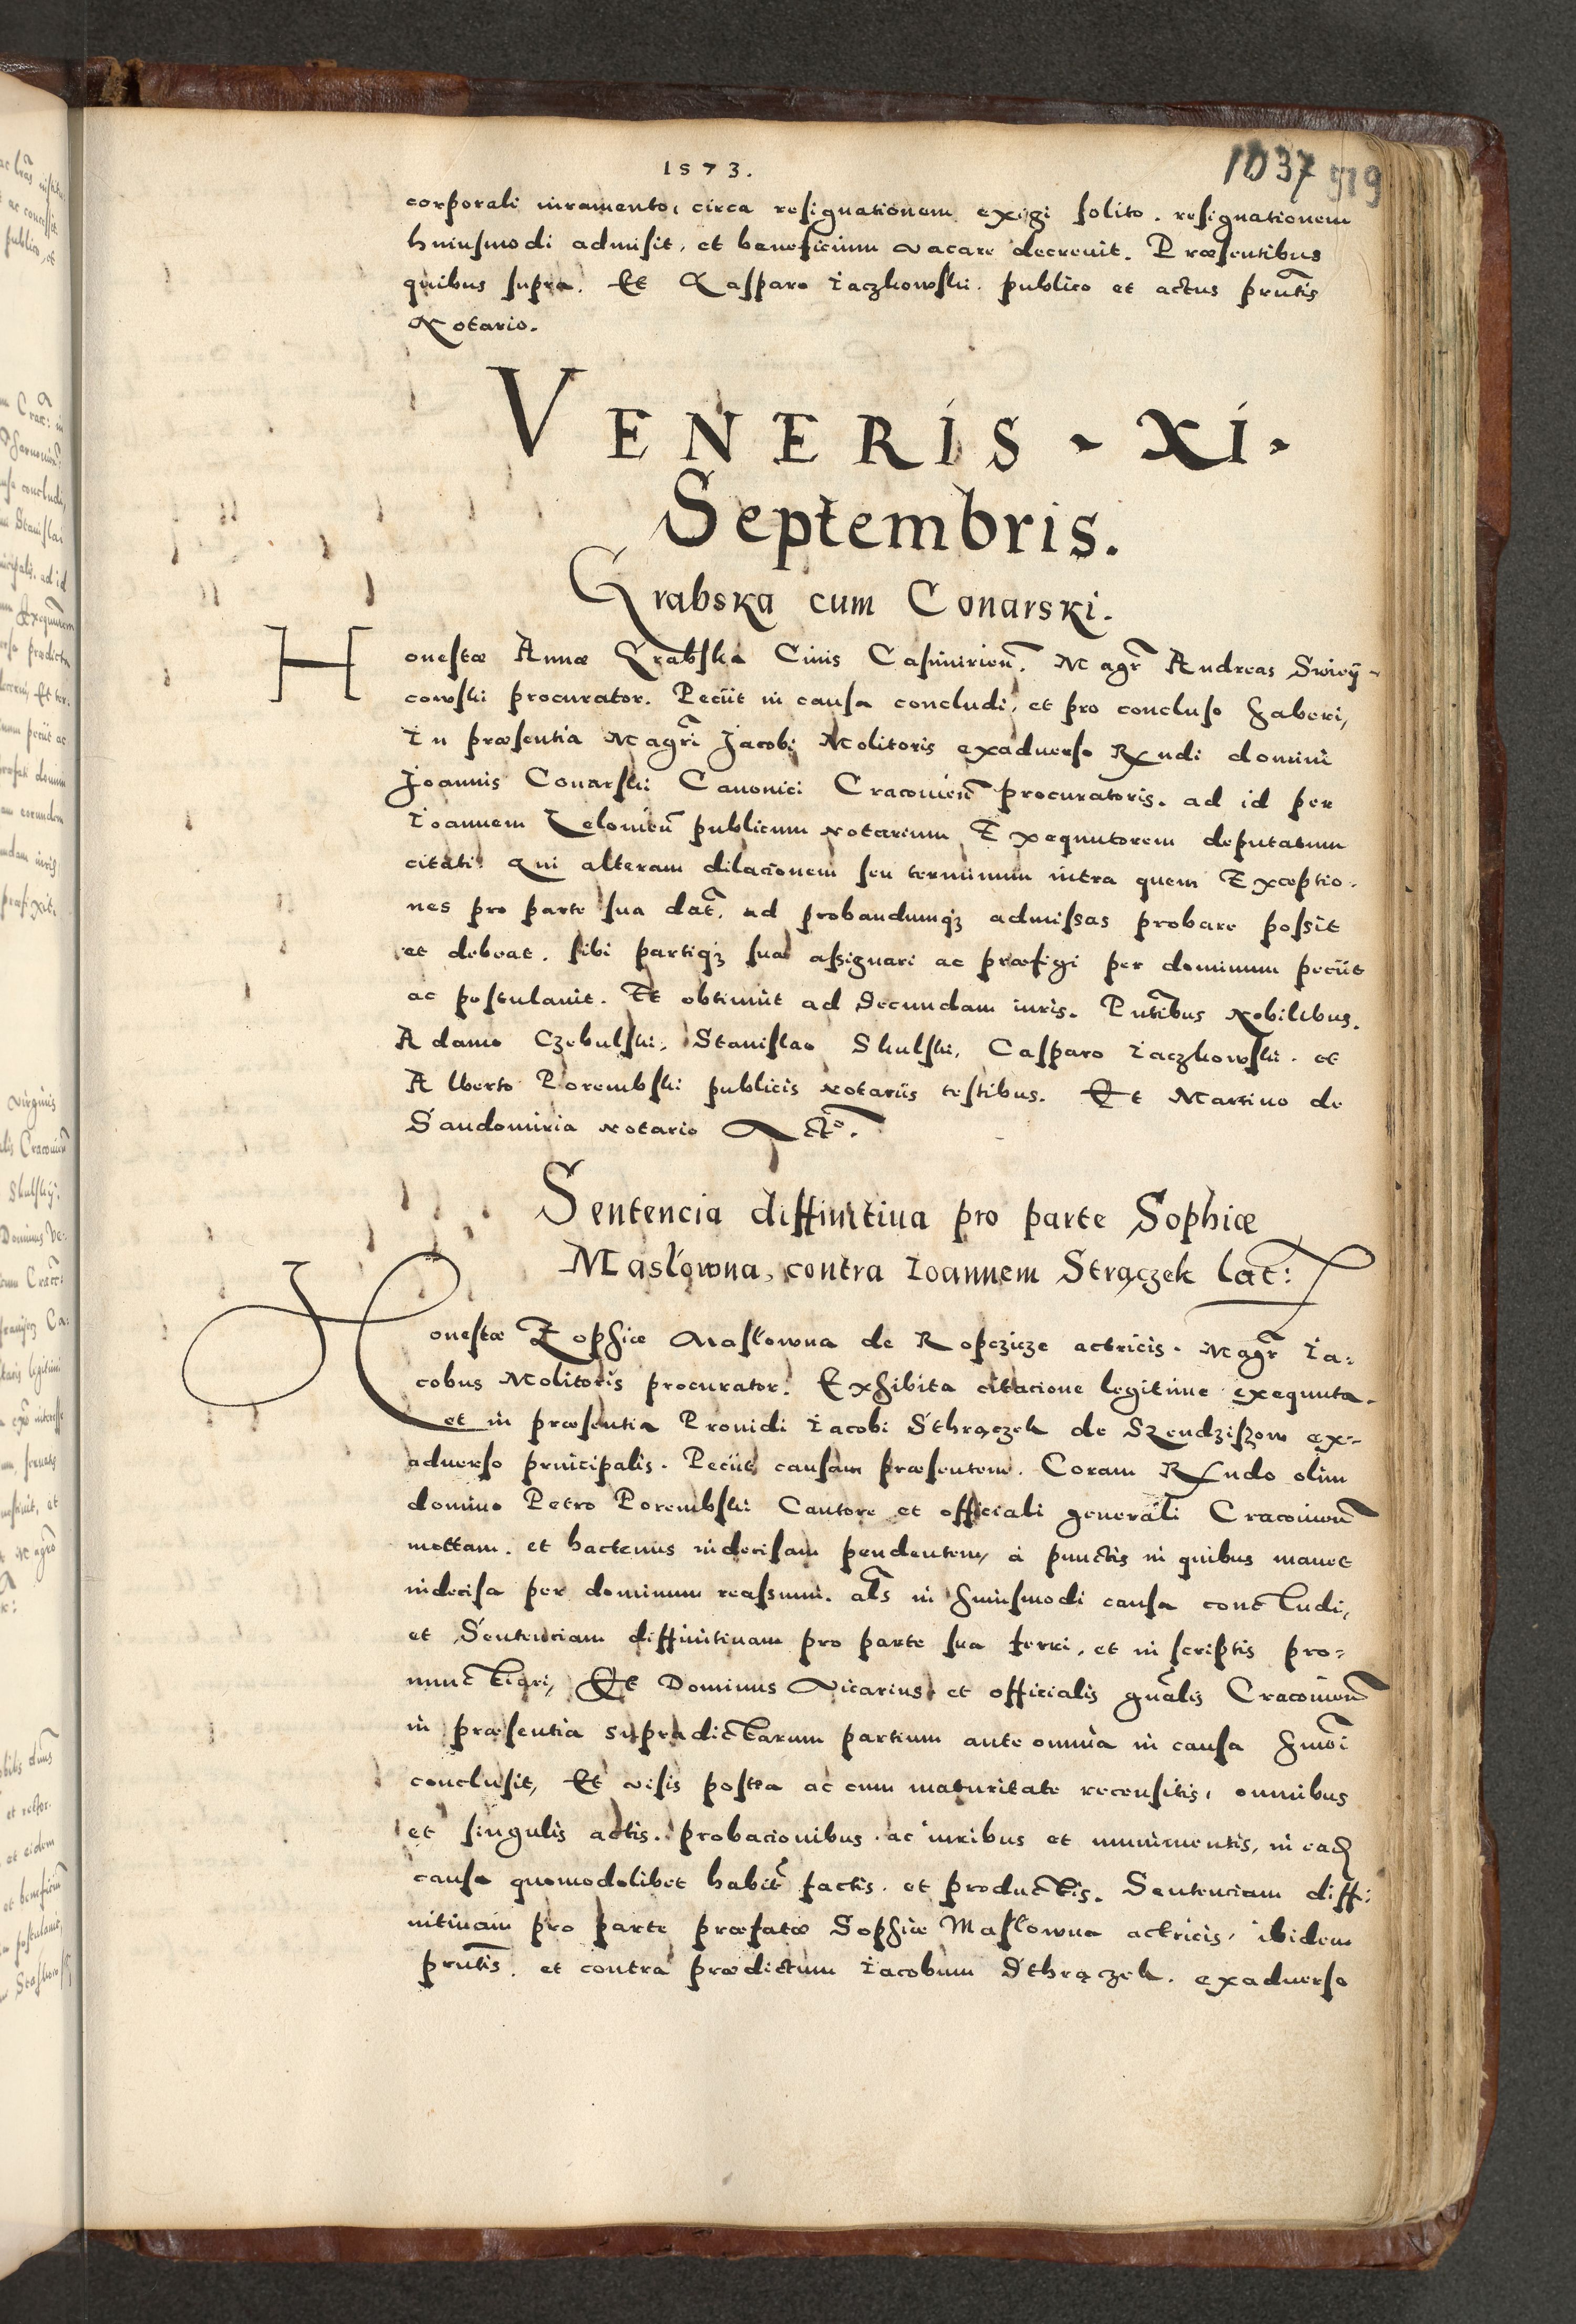 1573.
1037 519
corporali iuramento, circa resignationem exigi solito. resignationem
huiusmodi admisit, et beneficium vacare decreuit. Præsentibus
quibus supra. Et Gasparo Iaczkowski. publico et actus prntis
Notario.
VENERIS - XI -
Septembris.
Grabska cum Conarski.
Honestæ Annæ Grabska Ciuis Casimirien. Magr Andreas Swiey-
cowski procurator. Peciit in causa concludi, et pro concluso haberi,
In præsentia Magri Jacobi Molitoris exaduerso Rndi domini
Joannis Conarski Canonici Cracouien procuratoris. ad id per
Ioannem Zelomen publicum notarium Exequutorem deputatum
citati. qui alteram dilacionem seu terminum intra quem Exceptio-
nes pro parte sua dat. ad probandumq3 admissas probare possit
et debeat. sibi partiq3 suæ assignari ac præfigi per dominum peciit
ac postulauit. Et obtinuit ad Secundam iuris. Pntibus Nobilibus.
Adamo Czebulski, Stanislao Skulski, Casparo Iaczkowski. et
Alberto Porembski publicis notariis testibus. Et Martino de
Sandomiria notario Acto.
Sentencia diffinitiua pro parte Sophiæ
Masłowna, contra Ioannem Strączek Lat:
Honestæ Zophiæ Masłowna de Ropczicze actricis. Magr Ia-
cobus Molitoris procurator. Exhibita citacione legitime exequuta.
et in præsentia Prouidi Iacobi Sthrączek de Szendziszow ex-
aduerso principalis. Peciit causam præsentem. Coram Rndo olim
domino Petro Porembski Cantore et officiali generali Cracouien
mottam. et hactenus indecisam pendentem, à punctis in quibus manet
indecisa per dominum reassumi. als in huiusmodi causa concludi,
et Sentenciam diffinitiuam pro parte sua ferri, et in scriptis pro-
nunctiari, Et Dominus Vicarius et officialis gnalis Cracouien
in præsentia supradictarum partium ante omnia in causa hmoi
conclusit, Et visis postea ac cum maturitate recensitis, omnibus
et singulis actis. probacionibus ac iuribus et munimentis, in ead
causa quomodolibet habit factis. et productis. Sentenciam diffi-
nitiuam pro parte præfatæ Sophiæ Masłowna actricis, ibidem
prntis. et contra prædictum Iacobum Sthrączek. exaduerso